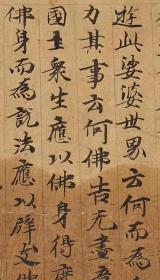 遊此娑婆世界云何而為
力其事云何佛告无盡意
國土衆生應以佛身得度
佛身而為說法應以辟支佛